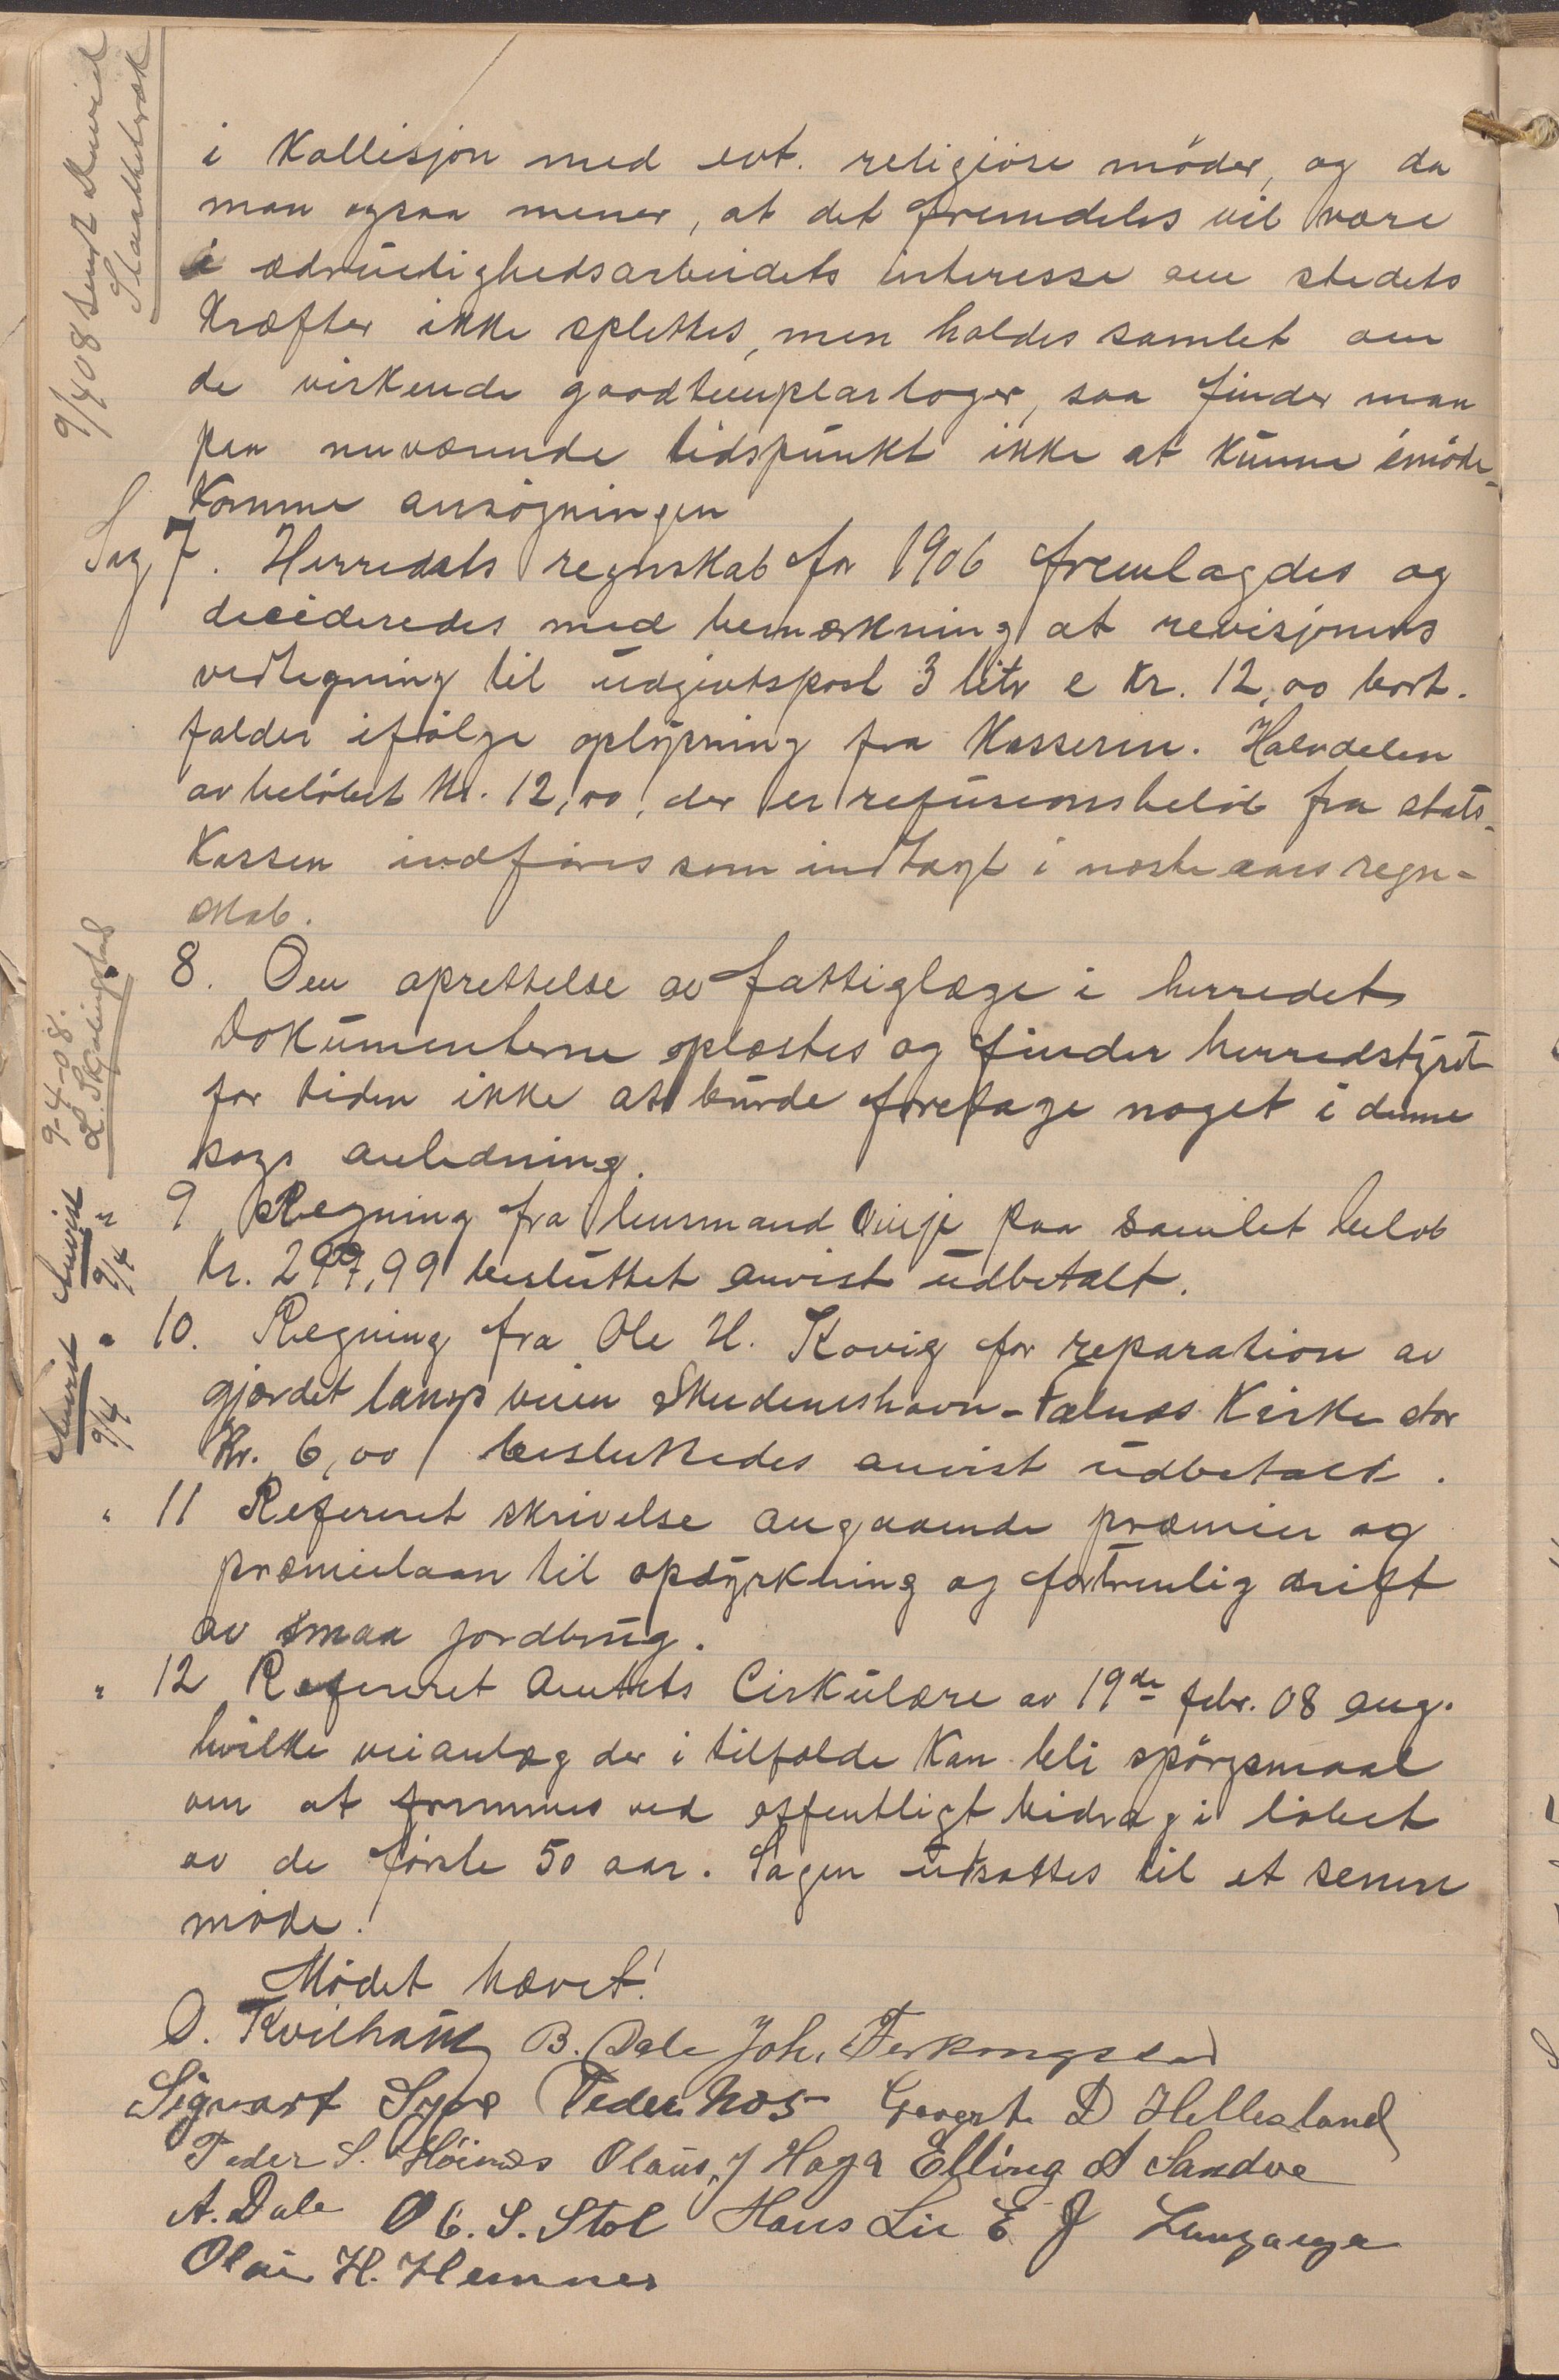 i Kollisjon med evt. religiøse möder, og da
man ogsaa mener, at det fremdeles vil være
i ædruelighedsarbeidets interesse om stedets
Kræfter ikke splittes, men holdes samlet om
de virkende goodtemplarloger, saa finder man
paa nuværende tidspunkt ikke at kunne imöde-
komme ansøgningen
Sag 7. Herredets regnskab for 1906 fremlagdes og
decideredes med bemærkning at revisjonens
vedtegning til udgivtspost 3 litr e Kr. 12,00 bort-
falder ifølge oplysning fra Kasseren. Halvdelen
av beløbet Kr. 12,00, der er refusionsbeløb fra stats-
Kassen indføres som indtægt i næste aars regn-
skab.
" 8. Om oprettelse av fattiglæge i herredet
Dokumenterne oplæstes og finder herredstyret
for tiden ikke at burde foretage noget i denne
sags anledning.
" 9 Regning fra lensmand Vinje paa samlet beløb
Kr. 297,99 besluttet anvist udbetalt.
" 10. Regning fra Ole H. Kovig for reparation av
gjærdet langs veien Skudeneshavn-Falnes Kirke stor
Kr. 6,00 besluttedes anvist udbetalt.
" 11 Refereret skrivelse angaaende præmier og
præmielaan til opdyrkning og fortrinlig drift
av smaa jordbrug.
" 12 Refereret Amtets Cirkulære av 19de febr. 08 ang.
hvilke veianlæg der i tilfælde kan bli spörgsmaal
om at fremmes ved offentligt bidrag i løbet
av de første 50 aar. Sagen udsattes til et senere
møde.
Mødet hævet!
O. Kvilhaug B. Dale Joh. Ferkingstad
Sigvart Syre Peder Næs Govert D Hellesland
Peder S. Höines Olaus J Haga Elling A Sandve
A. Dale O C. S. Stol Hans Lie E J
Olai H. Hemnes
9/4 08 sendt
9-4-08.
Anvist
9/4
Anvist
9/4